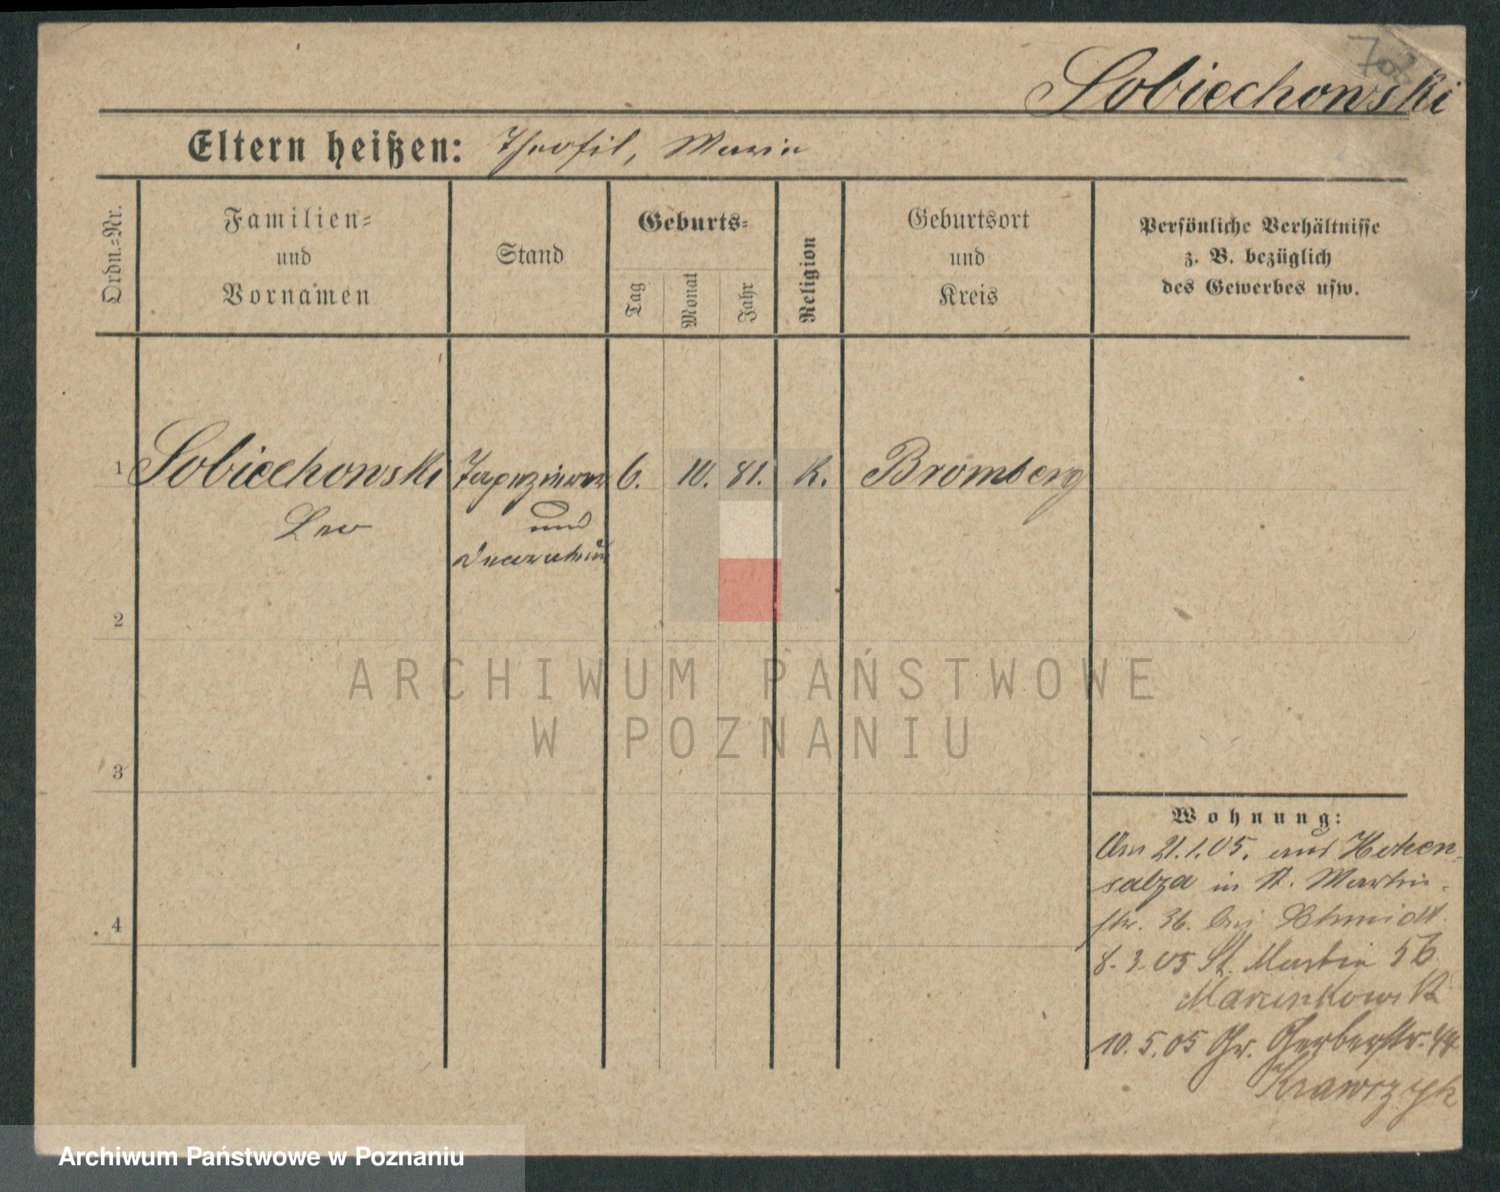 Sobiechowski
Eltern heißen: Theofil, Maria
Ordn.=Nr.
Familien=
und
Vornamen
Stand
Geburts=
Tag
Monat
Jahr
Religion
Geburtsort
und
Kreis
Persönliche Verhältnisse
z. B. bezüglich
des Gewerbes usw.
1 Sobiechowski Tapezierer 6. 10. 81. K. Bromberg
Leo und
Decorateur
2
3
4
ARCHIWUM PAŃSTWOWE
W POZNANIU
Wohnung:
Am 21.1.05. aus Hohen-
salza in St. Martin-
str. 36. bei Schmidt.
8.3.05 St. Martin 56
10.5.05 Gr. Gerberstr. 44
Krawczyk
Archiwum Państwowe w Poznaniu